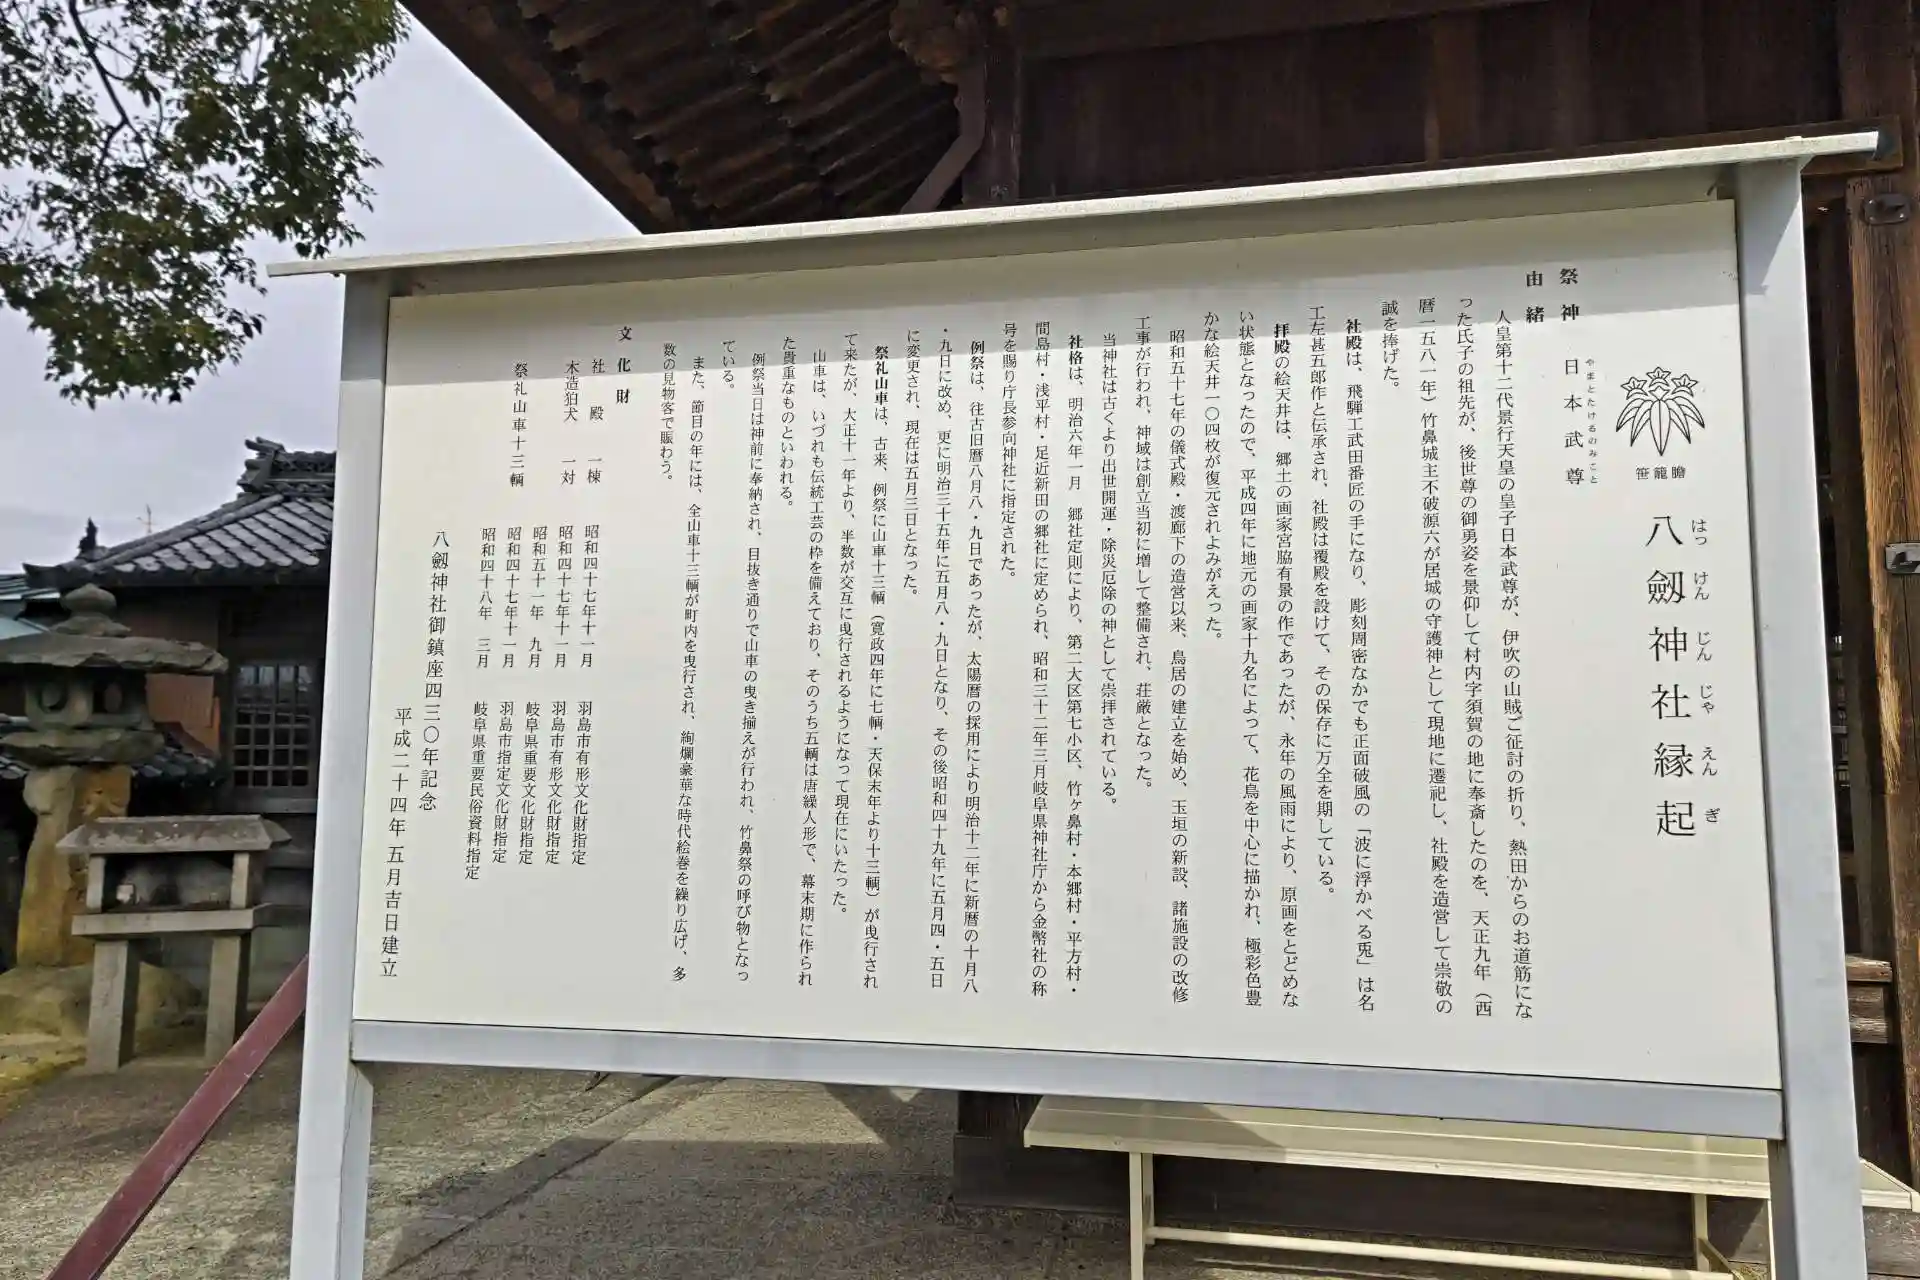 笹龍膽
八劔神社縁起
はっけんじんじゃえんぎ
祭神 日本武尊
やまとたけるのみこと
由緒
人皇第十二代景行天皇の皇子日本武尊が、伊吹の山賊ご征討の折り、熱田からのお道筋にな
った氏子の祖先が、後世尊の御勇姿を景仰して村内字須賀の地に奉斎したのを、天正九年（西
暦一五八一年）竹鼻城主不破源六が居城の守護神として現地に遷祀し、社殿を造営して崇敬の
誠を捧げた。
社殿は、飛騨工武田番匠の手になり、彫刻周密なかでも正面破風の「波に浮かべる兎」は名
工左甚五郎作と伝承され、社殿は覆殿を設けて、その保存に万全を期している。
拝殿の絵天井は、郷土の画家宮脇有景の作であったが、永年の風雨により、原画をとどめな
い状態となったので、平成四年に地元の画家十九名によって、花鳥を中心に描かれ、極彩色豊
かな絵天井一〇四枚が復元されよみがえった。
昭和五十七年の儀式殿・渡廊下の造営以来、鳥居の建立を始め、玉垣の新設、諸施設の改修
工事が行われ、神域は創立当初に増して整備され、荘厳となった。
当神社は古くより出世開運・除災厄除の神として崇拝されている。
社格は、明治六年一月 郷社定則により、第二大区第七小区、竹ヶ鼻村・本郷村・平方村・
間島村・浅平村・足近新田の郷社に定められ、昭和三十二年三月岐阜県神社庁から金幣社の称
号を賜り庁長参向神社に指定された。
例祭は、往古旧暦八月八・九日であったが、太陽暦の採用により明治十二年に新暦の十月八
・九日に改め、更に明治三十五年に五月八・九日となり、その後昭和四十九年に五月四・五日
に変更され、現在は五月三日となった。
祭礼山車は、古来、例祭に山車十三輌（寛政四年に七輌・天保末年より十三輌）が曳行され
て来たが、大正十一年より、半数が交互に曳行されるようになって現在にいたった。
山車は、いづれも伝統工芸の枠を備えており、そのうち五輌は唐繰人形で、幕末期に作られ
た貴重なものといわれる。
例祭当日は神前に奉納され、目抜き通りで山車の曳き揃えが行われ、竹鼻祭の呼び物となっ
ている。
また、節目の年には、全山車十三輌が町内を曳行され、絢爛豪華な時代絵巻を繰り広げ、多
数の見物客で賑わう。
文化財
社殿 一棟 昭和四十七年十一月 羽島市有形文化財指定
木造狛犬 一対 昭和四十七年十一月 羽島市有形文化財指定
昭和五十一年 九月 岐阜県重要文化財指定
祭礼山車十三輌 昭和四十七年十一月 羽島市指定文化財指定
昭和四十八年 三月 岐阜県重要民俗資料指定
八劔神社御鎮座四三〇年記念
平成二十四年 五月吉日建立